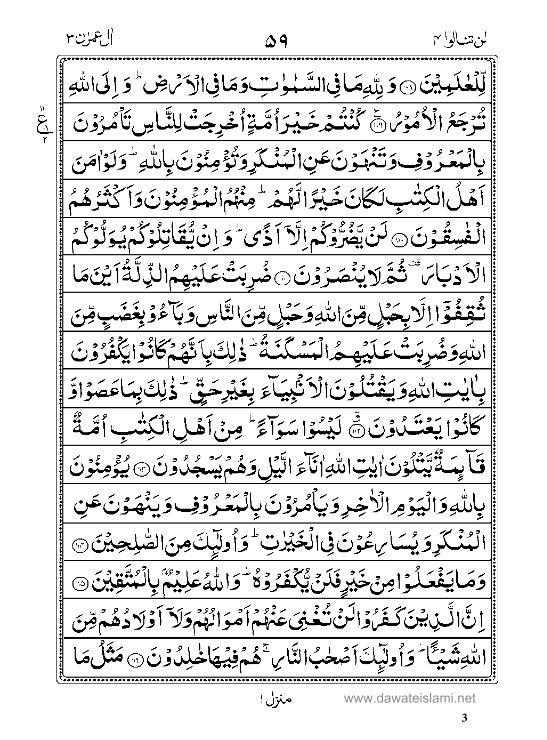 لن تنالوا ۴ ۵۹ اٰل عمرٰن ۳
لِّلْعٰلَمِیْنَ ﴿۱۰۸﴾ وَلِلّٰهِ مَا فِی السَّمٰوٰتِ وَمَا فِی الْاَرْضِ ؕ وَاِلَی اللّٰهِ
تُرْجَعُ الْاُمُوْرُ ﴿۱۰۹﴾ كُنْتُمْ خَیْرَ اُمَّةٍ اُخْرِجَتْ لِلنَّاسِ تَاْمُرُوْنَ
بِالْمَعْرُوْفِ وَتَنْهَوْنَ عَنِ الْمُنْكَرِ وَتُؤْمِنُوْنَ بِاللّٰهِ ؕ وَلَوْ اٰمَنَ
اَهْلُ الْكِتٰبِ لَكَانَ خَیْرًا لَّهُمْ ؕ مِنْهُمُ الْمُؤْمِنُوْنَ وَاَكْثَرُهُمُ
الْفٰسِقُوْنَ ﴿۱۱۰﴾ لَنْ یَّضُرُّوْكُمْ اِلَّاۤ اَذًی ؕ وَاِنْ یُّقَاتِلُوْكُمْ یُوَلُّوْكُمُ
الْاَدْبَارَ ۟ ثُمَّ لَا یُنْصَرُوْنَ ﴿۱۱۱﴾ ضُرِبَتْ عَلَیْهِمُ الذِّلَّةُ اَیْنَ مَا
ثُقِفُوْۤا اِلَّا بِحَبْلٍ مِّنَ اللّٰهِ وَحَبْلٍ مِّنَ النَّاسِ وَبَآءُوْ بِغَضَبٍ مِّنَ
اللّٰهِ وَضُرِبَتْ عَلَیْهِمُ الْمَسْكَنَةُ ؕ ذٰلِكَ بِاَنَّهُمْ كَانُوْا یَكْفُرُوْنَ
بِاٰیٰتِ اللّٰهِ وَیَقْتُلُوْنَ الْاَنْۢبِیَآءَ بِغَیْرِ حَقٍّ ؕ ذٰلِكَ بِمَا عَصَوْا وَّ
كَانُوْا یَعْتَدُوْنَ ﴿۱۱۲﴾ لَیْسُوْا سَوَآءً ؕ مِنْ اَهْلِ الْكِتٰبِ اُمَّةٌ
قَآىِٕمَةٌ یَّتْلُوْنَ اٰیٰتِ اللّٰهِ اٰنَآءَ الَّیْلِ وَهُمْ یَسْجُدُوْنَ ﴿۱۱۳﴾ یُؤْمِنُوْنَ
بِاللّٰهِ وَالْیَوْمِ الْاٰخِرِ وَیَاْمُرُوْنَ بِالْمَعْرُوْفِ وَیَنْهَوْنَ عَنِ
الْمُنْكَرِ وَیُسَارِعُوْنَ فِی الْخَیْرٰتِ ؕ وَاُولٰٓىِٕكَ مِنَ الصّٰلِحِیْنَ ﴿۱۱۴﴾
وَمَا یَفْعَلُوْا مِنْ خَیْرٍ فَلَنْ یُّكْفَرُوْهُ ؕ وَاللّٰهُ عَلِیْمٌۢ بِالْمُتَّقِیْنَ ﴿۱۱۵﴾
اِنَّ الَّذِیْنَ كَفَرُوْا لَنْ تُغْنِیَ عَنْهُمْ اَمْوَالُهُمْ وَلَاۤ اَوْلَادُهُمْ مِّنَ
اللّٰهِ شَیْـًٔا ؕ وَاُولٰٓىِٕكَ اَصْحٰبُ النَّارِ ۚ هُمْ فِیْهَا خٰلِدُوْنَ ﴿۱۱۶﴾ مَثَلُ مَا
منزل ۱
www.dawateislami.net
3